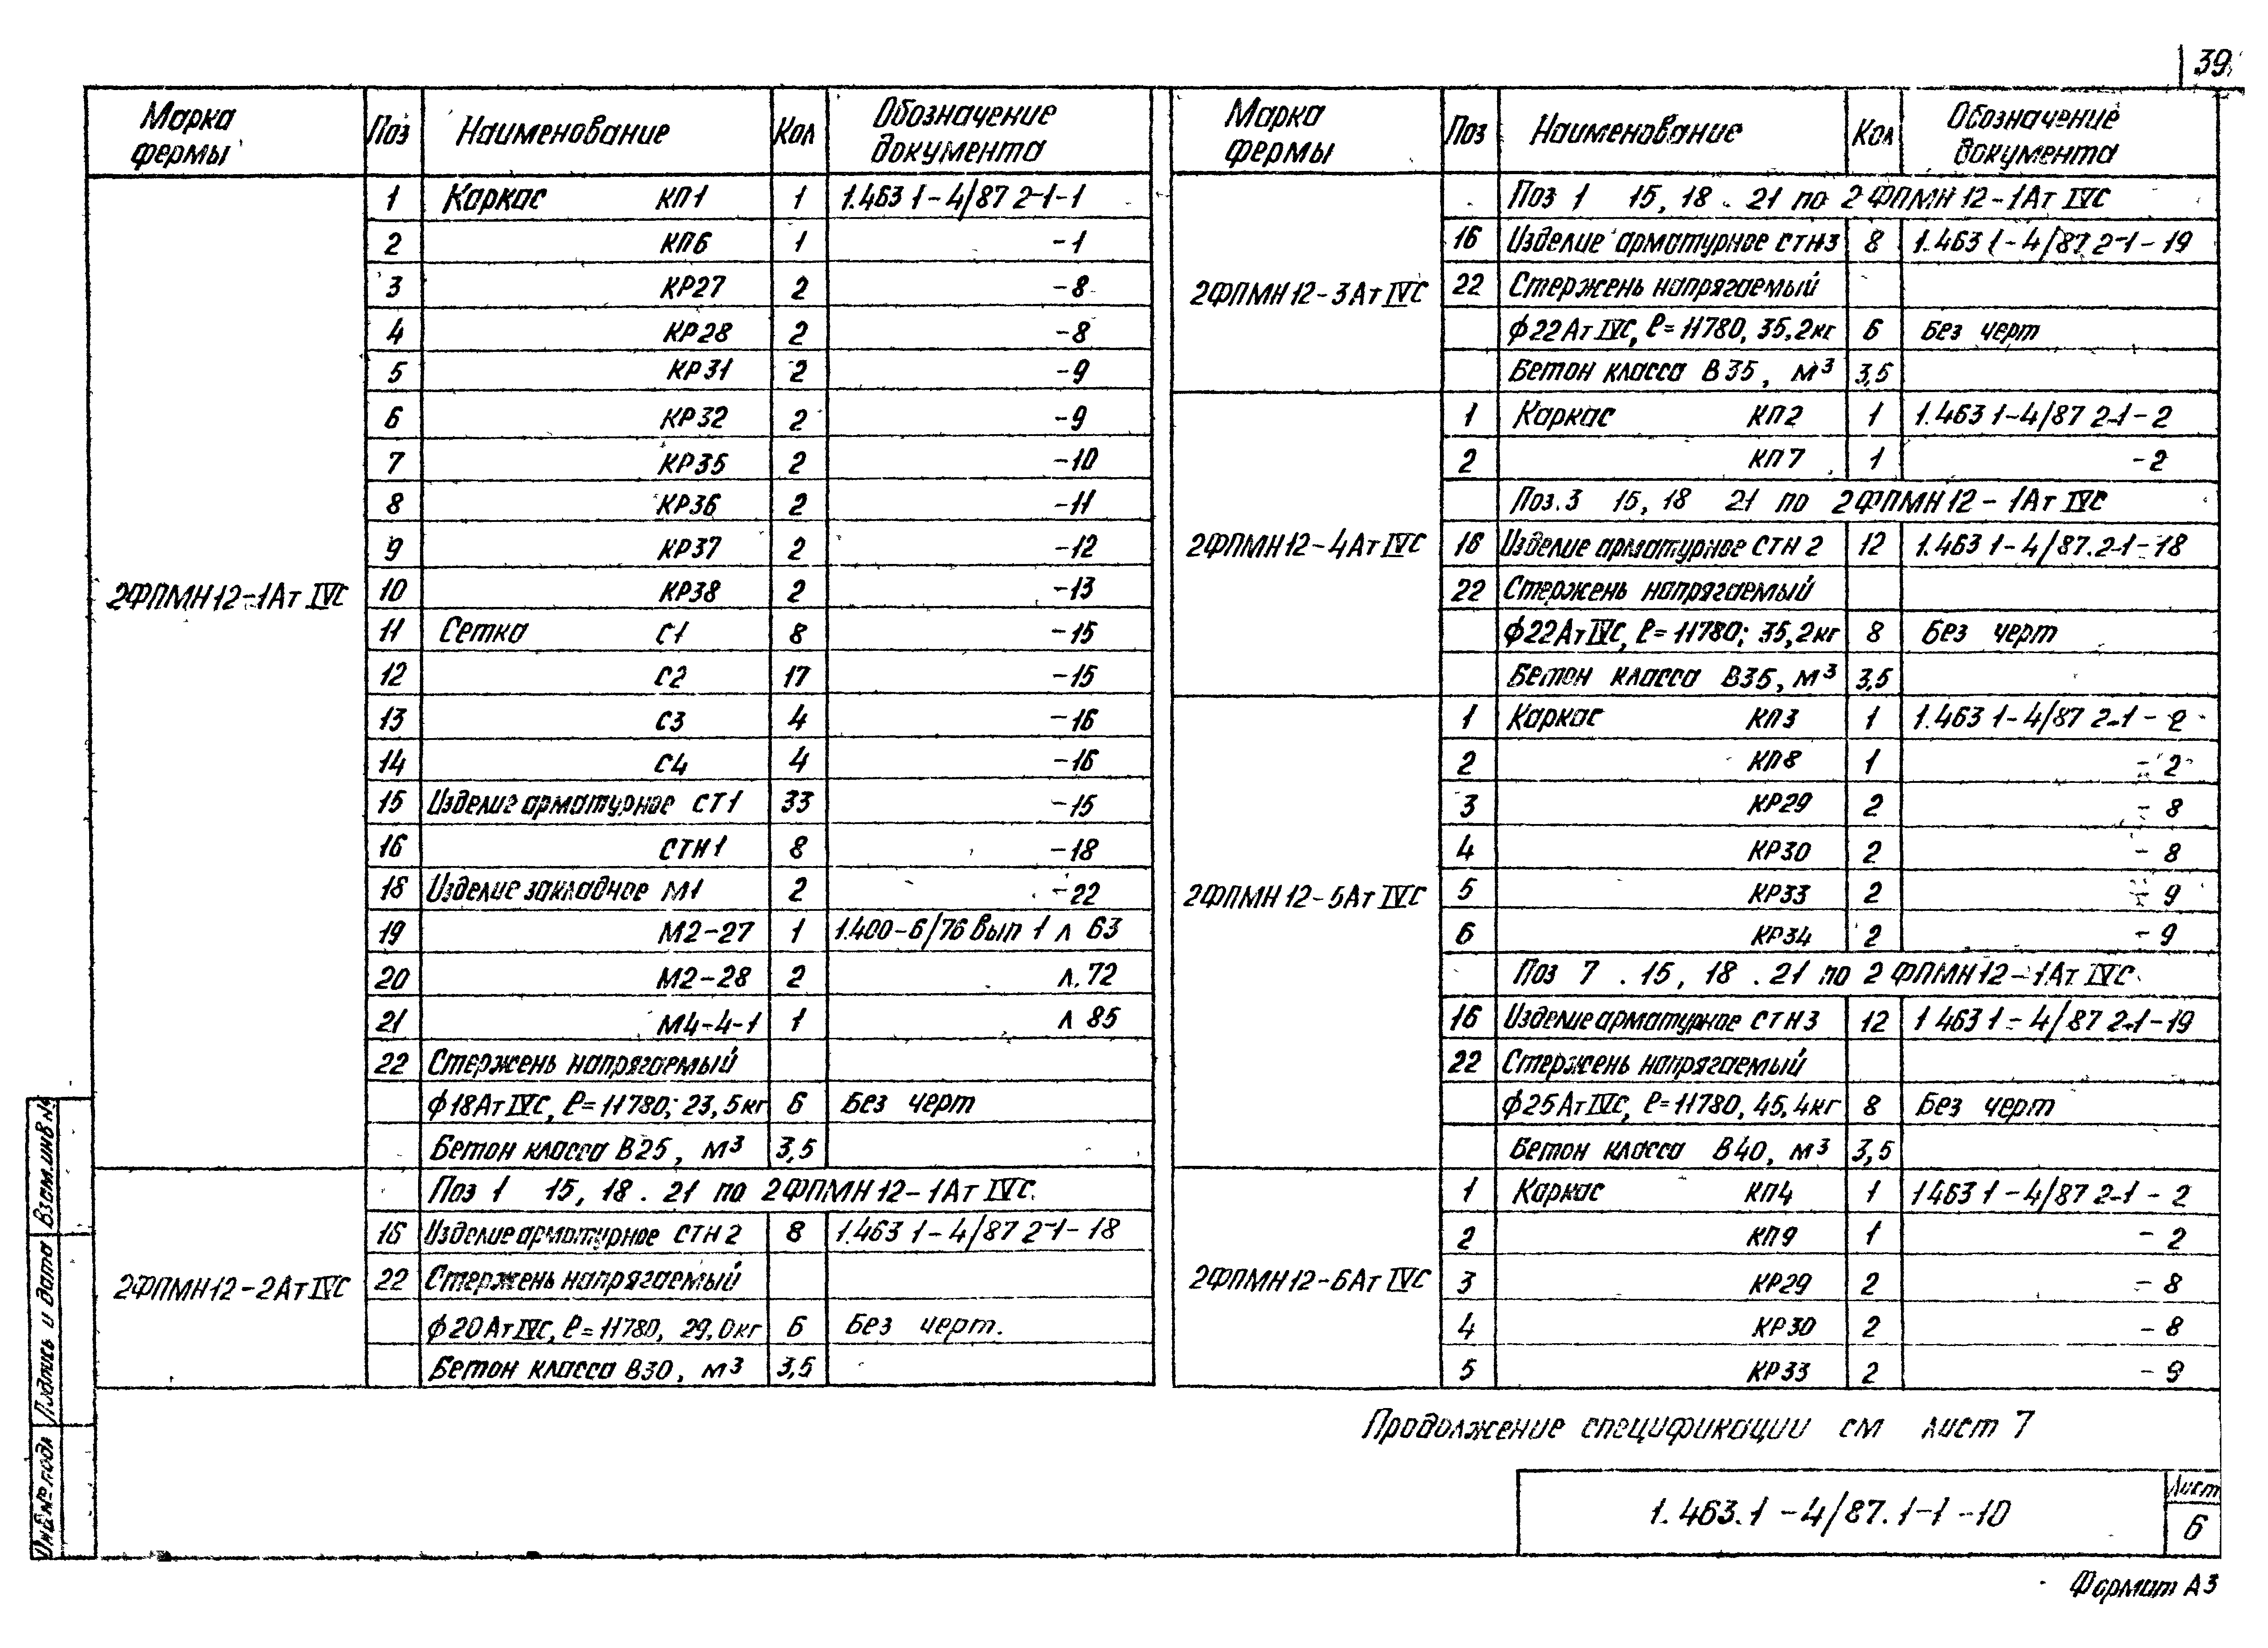 39
Марка фермы Поз Наименование Кол Обозначение документа
2ФПМН12-1АтIVС
1 Каркас КП1 1 1.463 1-4/87 2-1-1
2 КП6 1 -1
3 КР27 2 -8
4 КР28 2 -8
5 КР31 2 -9
6 КР32 2 -9
7 КР35 2 -10
8 КР36 2 -11
9 КР37 2 -12
10 КР38 2 -13
11 Сетка С1 8 -15
12 С2 17 -15
13 С3 4 -16
14 С4 4 -16
15 Изделие арматурное СТ1 33 -15
16 СТН1 8 -18
18 Изделие закладное М1 2 -22
19 М2-27 1 1.400-6/76 Вып 1 л 63
20 М2-28 2 л.72
21 М4-4-1 1 л 85
22 Стержень напрягаемый
ϕ18АтIVС, ℓ=11780; 23,5кг 6 Без черт
Бетон класса В25, м³ 3,5
2ФПМН12-2АтIVС
Поз 1 15, 18 . 21 по 2ФПМН12-1АтIVС
16 Изделие арматурное СТН2 8 1.463 1-4/87 2-1-18
22 Стержень напрягаемый
ϕ20АтIVС, ℓ=11780, 29,0кг 6 Без черт.
Бетон класса В30, м³ 3,5
Марка фермы Поз Наименование Кол Обозначение документа
2ФПМН12-3АтIVС
Поз 1 15, 18 . 21 по 2ФПМН12-1АтIVС
16 Изделие арматурное СТН3 8 1.463 1-4/87 2-1-19
22 Стержень напрягаемый
ϕ22АтIVС, ℓ=11780, 35,2кг 6 Без черт
Бетон класса В35, м³ 3,5
2ФПМН12-4АтIVС
1 Каркас КП2 1 1.463 1-4/87 2-1-2
2 КП7 1 -2
Поз.3 15, 18 21 по 2ФПМН12-1АтIVС
16 Изделие арматурное СТН2 12 1.463 1-4/87.2-1-18
22 Стержень напрягаемый
ϕ22АтIVС, ℓ=11780; 35,2кг 8 Без черт
Бетон класса В35, м³ 3,5
2ФПМН12-5АтIVС
1 Каркас КП3 1 1.463 1-4/87 2-1-2
2 КП8 1 -2
3 КР29 2 -8
4 КР30 2 -8
5 КР33 2 -9
6 КР34 2 -9
Поз 7 . 15, 18 . 21 по 2ФПМН12-1АтIVС
16 Изделие арматурное СТН3 12 1 463 1-4/87 2-1-19
22 Стержень напрягаемый
ϕ25АтIVС, ℓ=11780, 45,4кг 8 Без черт
Бетон класса В40, м³ 3,5
2ФПМН12-6АтIVС
1 Каркас КП4 1 1 463 1-4/87 2-1-2
2 КП9 1 -2
3 КР29 2 -8
4 КР30 2 -8
5 КР33 2 -9
Продолжение спецификации см лист 7
1.463.1-4/87.1-1-10
Лист
6
Формат А3
Взам.инв №
Подпись и дата
Инв № подл